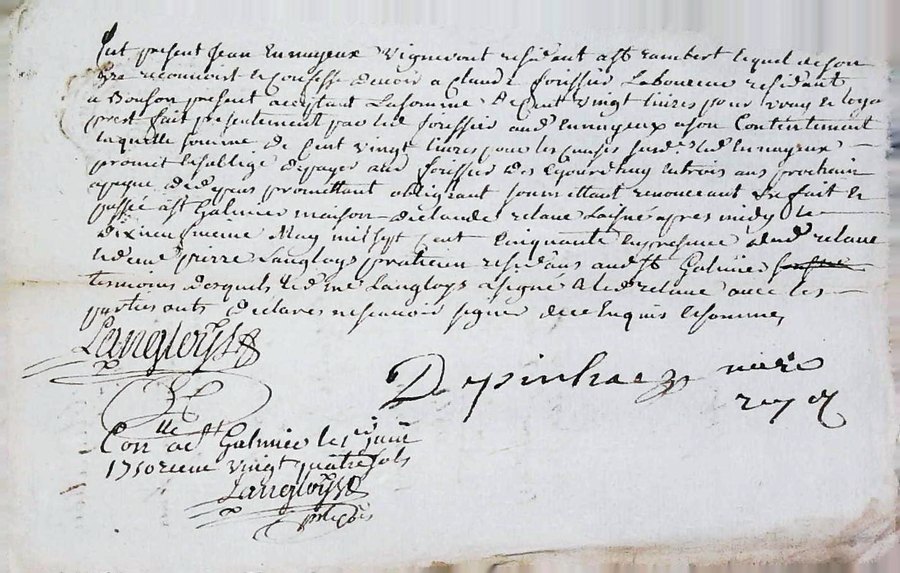 fut present Jean Ennuyeux Vigneront residant a St Rambert lequel de son
gre reconnoit et Confesse devoir a Claude foressier Laboureur residant
a Bonson present acceptant La somme de Cent vingt livres pour vray et loyal
prest fait presentement par led foressier aud Ennuyeux a son Contentement
laquelle somme de Cent vingt livres pour les Causes susd. led Ennuyeux
promet et s'allige de payer aud foressier des en trois ans prochain
a peyne de depens promettant obligeant soumettant renonceant fait et
passé a St Galmier maison de Claude relave Laisné apres midy le
dix neufvieme May mil sept cent Cinquante En presence dud relave
et de me pierre Langloys praticien residans aud St Galmier
temoins desquels led me Langloys a signé led relave avec les
parties ont declarés ne scavoir signer de ce Enquis et sommé,
Langloys
Depinhac nore
Con a St Galmier le juin
1750 receu vingt quatre sols
Langloys